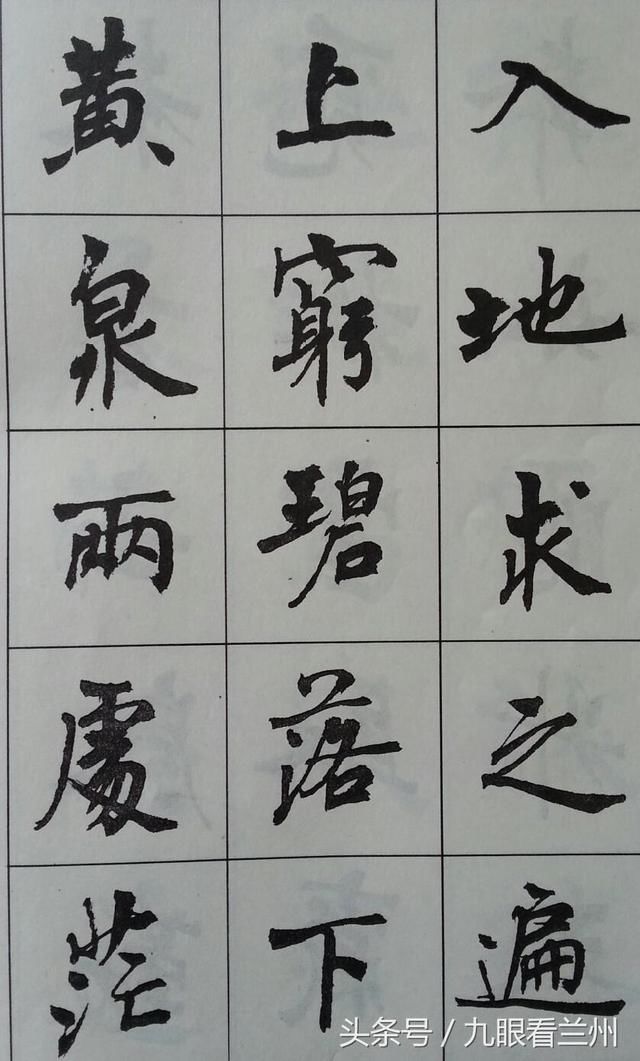 入地求之遍
上窮碧落下
黃泉兩處茫
头条号 / 九眼看兰州